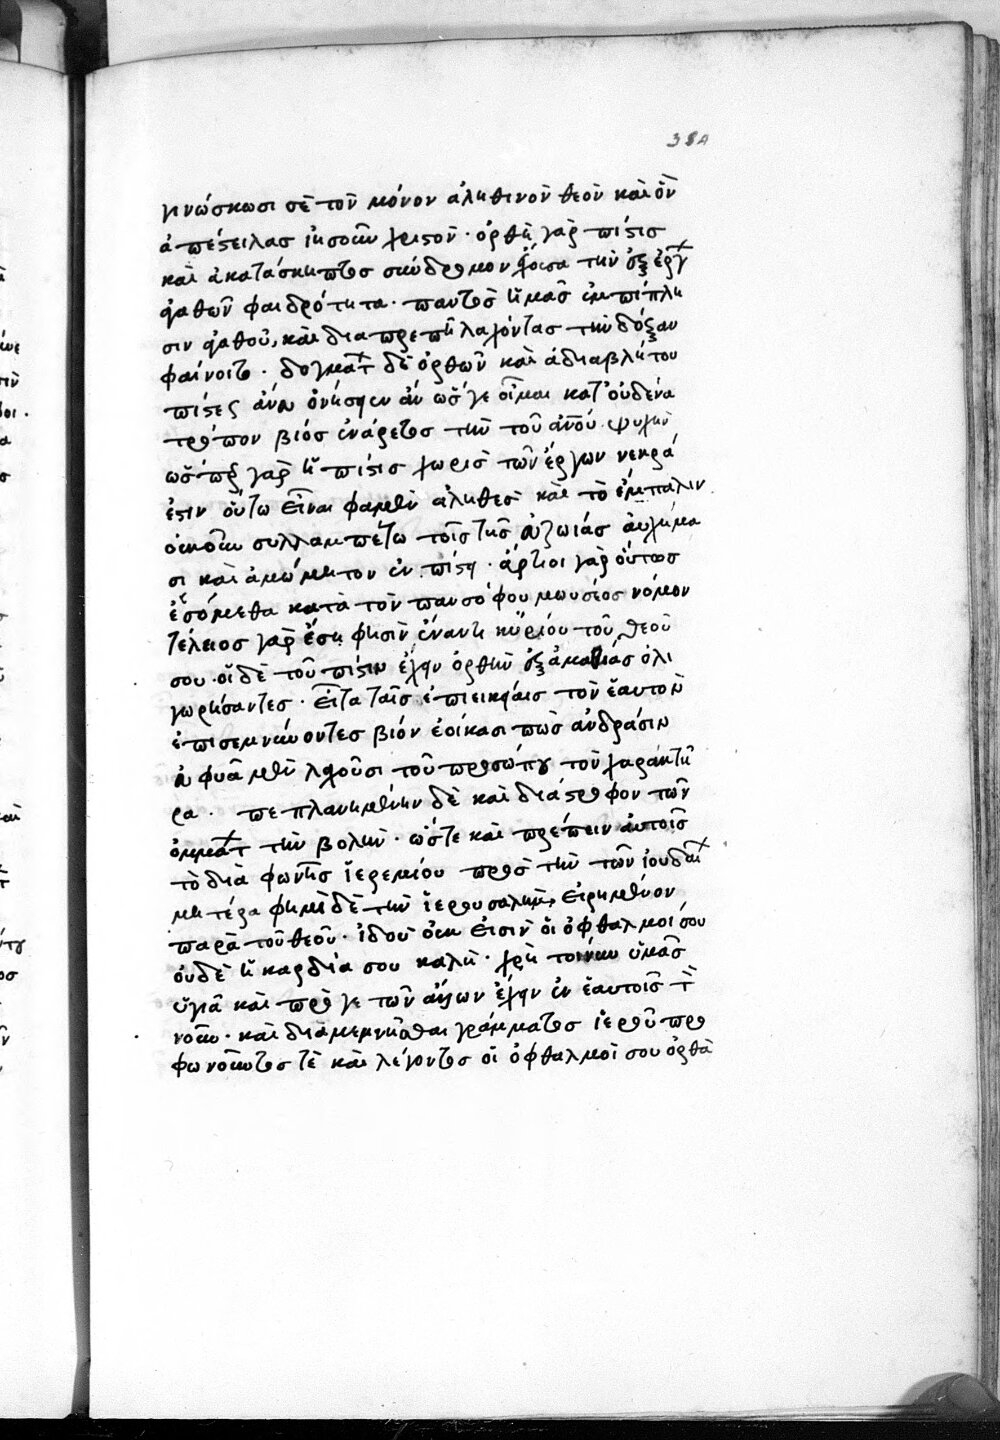 384
γινώσκωσι σὲ τὸν μόνον ἀληθινὸν θεὸν καὶ ὃν
ἀπέστειλας ἰησοῦν χριστὸν· ὀρθὴ γὰρ πίστις
καὶ ἀκατάσκηπτος σύνδρομον ἔχουσα τὴν ἐξ ἔργ
ἀγαθῶν φαιδρότητα· παντὸς ἡμᾶς ἐμπίπλη
σιν ἀγαθοῦ, καὶ διαπρεπῆ λαχόντας τὴν δόξαν
φαίνοιτο· δογμάτ δὲ ὀρθῶν καὶ ἀδιαβλήτου
πίστεως ἄνευ ὀνήσειεν ἂν ὥς γε οἶμαι κατ' οὐδένα
τρόπον βίος ἐνάρετος τὴν τοῦ ἀνοῦ ψυχὴν
ὥσπερ γὰρ ἡ πίστις χωρὶς τῶν ἔργων νεκρά
ἐστιν οὕτω εἶναι φαμὲν ἀληθὲς καὶ τὸ ἔμπαλιν
οὐκοῦν συλλαμπέτω τοῖς τῆς εὐζωίας αὐχήμα
σι καὶ ἀμώμητον ἐν πίστει· ἄρτιοι γὰρ οὕτως
ἐσόμεθα κατὰ τὸν πανσόφου μωυσέος νόμον
τέλειος γὰρ ἔση φησὶν ἔναντι κυρίου τοῦ θεοῦ
σου· οἱ δὲ τοῦ πίστιν ἔχειν ὀρθὴν ἐξ ἀμαθίας ὀλι
γωρήσαντες· εἶτα ταῖς ἐπιεικείαις τὸν ἑαυτὸν
ἐπισεμνύνοντες βιόν ἐοίκασι πὼς ἀνδράσιν
εὐφυᾶ μὲν λαχοῦσι τοῦ προσώπου τὸν χαρακτῆ
ρα· πεπλανημένην δὲ καὶ διάστροφον τῶν
ὀμμάτ τὴν βολὴν· ὥστε καὶ πρέπειν αὐτοῖς
τὸ διὰ φωνῆς ἱερεμίου πρὸς τὴν τῶν ἰουδαί
μητέρα φημὶ δὲ τὴν ἱερουσαλὴμ, εἰρημένον
παρὰ τοῦ θεοῦ· ἰδοὺ οὐκ εἰσὶν οἱ ὀφθαλμοί σου
οὐδὲ ἡ καρδία σου καλὴ· χρὴ τοίνυν ὑμᾶς
ὑγιᾶ καὶ πρό γε τῶν ἄλλων ἔχειν ἐν ἑαυτοῖς τὸν
νοῦν· καὶ διαμεμνῆσθαι γράμματος ἱεροῦ προ
φωνοῦντος τὲ καὶ λέγοντος οἱ ὀφθαλμοὶ σου ὀρθὰ